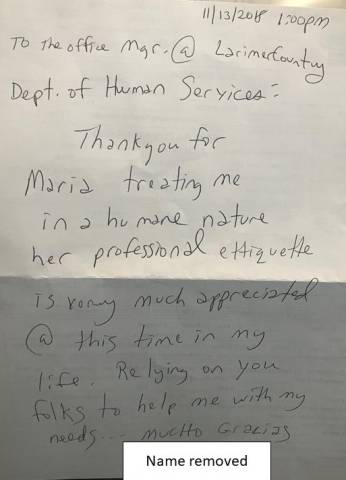 11/13/2018 1:00pm
To the office Mgr. @ LarimerCountry
Dept. of Human Services:
Thankyou for
Maria treating me
in a humane nature
her professional ettiquette
is vorry much appreciated
@ this time in my
life. Relying on you
folks to help me with my
needs... mucho Gracias
Name removed